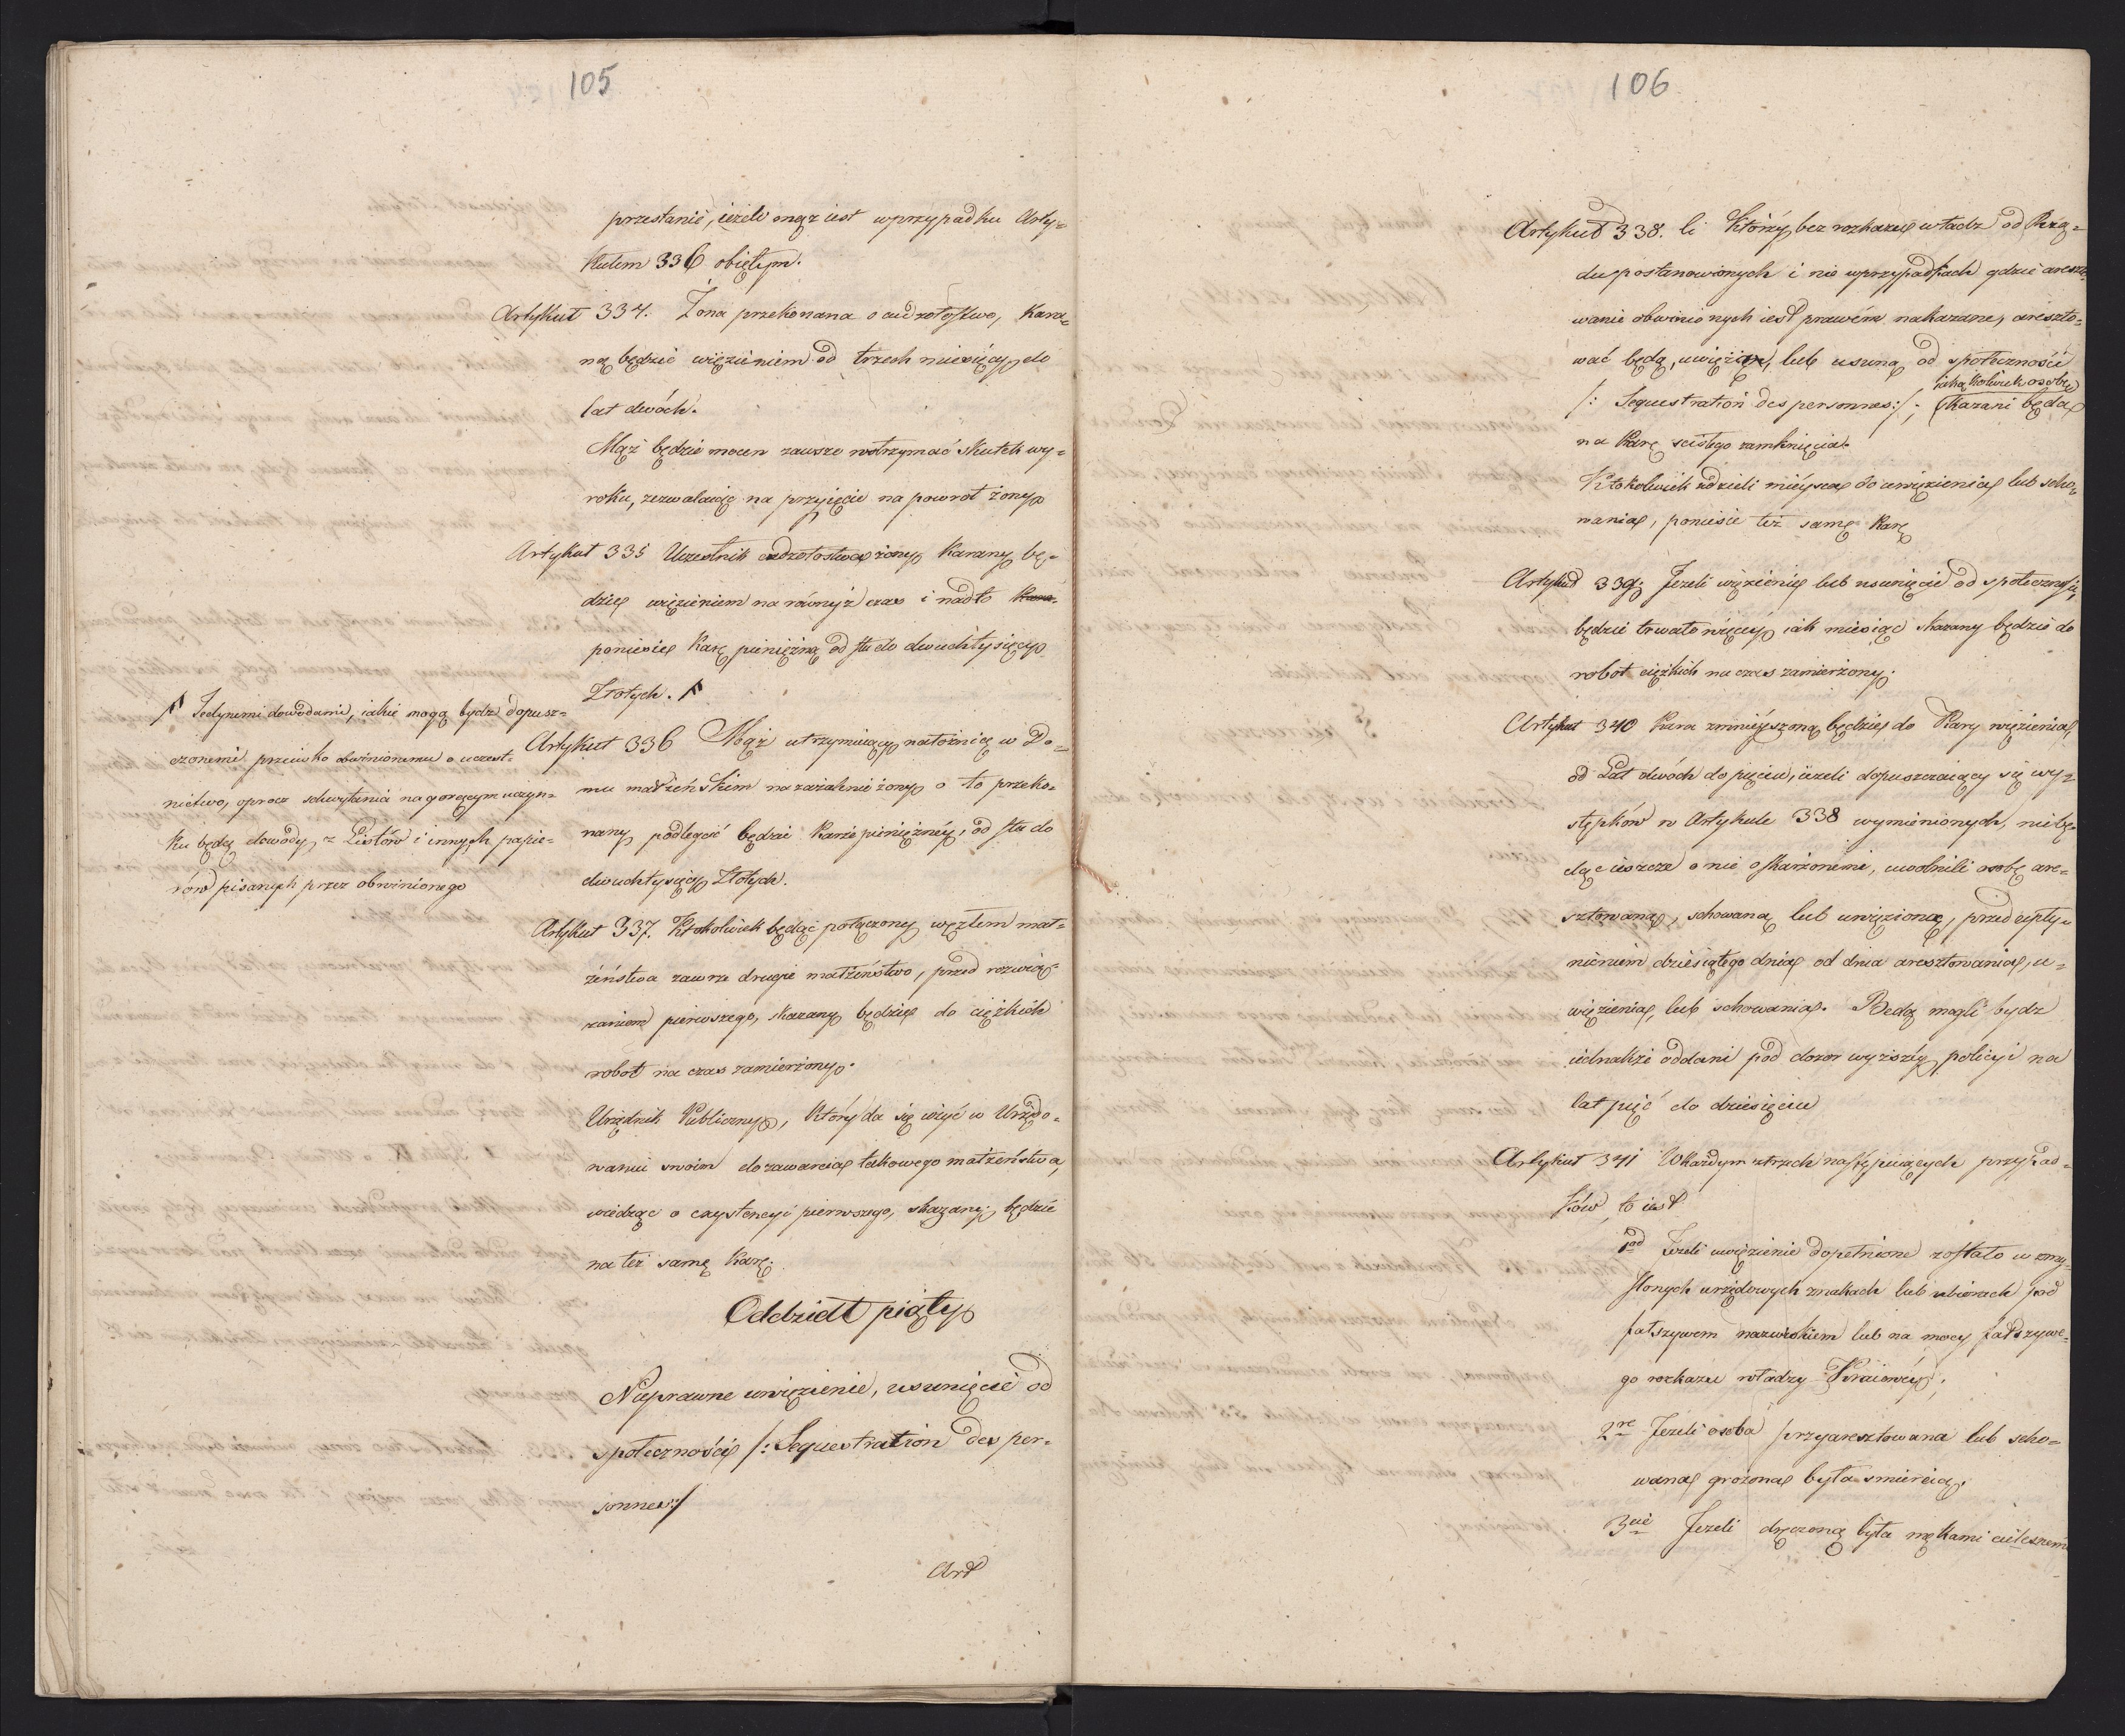 105
przestanie, ieżeli mąż iest w przypadku Arty=
kułem 336 obiętym.
Artykuł 334. Żona przekonana o cudzołostwo, Kara=
ną będzie więzieniem od trzech miesięcy do
lat dwóch.
Mąż będzie mocen zawsze wstrzymać skutek wy=
roku, zezwalaiąc na przyięcie na powrot żony
Artykuł 335 Uczestnik cudzołostwa żony Karany bę=
dzie więzieniem na równyż czas i nadto Kara
poniesie Karę pieniężną od stu do dwuchtysięcy
Złotych. ⌈
⌈ Jedynemi dowodami, iakie mogą bydz dopusz=
czonemi przeciwko obwinionemu o uczest=
nictwo, oprocz schwytania na gorącym uczyn=
ku będą dowody z Listów i innych papie=
rów pisanych przez obwinionego
Artykuł 336 Mąż utrzymuiący nałożnicę w Do=
mu małżeńskim na zażalenie żony o to przeko=
nany podlegać będzie Karze pieniężnéy, od stu do
dwuchtysięcy Złotych.
Artykuł 337. Ktokolwiek będąc połączony węzłem mał=
żeństwa zawrze drugie małżeństwo, przed rozwią=
zaniem pierwszego, skazany będzie do ciężkich
robot na czas zamierzony.
Urzędnik Publiczny, który da się użyć w Urzędo=
waniu swoim do zawarcia takowego małżeństwa,
wiedząc o exystencyi pierwszego, skazany będzie
na też samę Karę.
Oddział piąty
Nieprawne uwięzienie, usunięcie od
społeczności /: Sequestration des per=
sonnes:/
Art
106
Artykuł 338. li Którzy bez rozkazu władz od Rzą=
du postanowionych i nie w przypadkach gdzie areszto=
wanie obwinionych iest prawém nakazane, areszto=
wać będą, uwiężią, lub usuną od społeczności
iakąkolwiek osobę
/: Sequestration des personnes:/; skazani będą
na Karę scisłego zamknięcia.
Ktokolwiek udzieli mieysca do uwięzienia lub scho=
wania, poniesie też samę Karę
Artykuł 339. Jeżeli więzienie lub usunięcie od społeczności,
będzie trwało więcey iak miesiąc skazany będzie do
robot ciężkich na czas zamierzony.
Artykuł 340 Kara zmnieyszoną będzie do Kary więzienia
od Lat dwóch do pięciu, ieżeli dopuszczaiący się wy=
stępków w Artykule 338 wymienionych, nie bę=
dąc ieszcze o nie oskarżonemi, uwolnili osobę are=
sztowaną, schowaną lub uwięzioną, przed upły=
nieniem dziesiątego dnia od dnia aresztowania, u=
więzienia, lub schowania. Będą mogli bydz
iednakże oddani pod dozor wyższéy policyi na
lat pięć do dziesięciu
Artykuł 341 W każdym z trzech następuiących przypad=
ków, to iest
1od Jeżeli uwięzienie dopełnione zostało w zmy=
ślonych urzędowych znakach lub ubiorach pod
fałszywem nazwiskiem lub na mocy fałszywe=
go rozkazu władzy Kraiowéy;
2re Jeżeli osoba przyaresztowana lub scho=
wana grożona była smiercią.
3cie Jeżeli dręczoną była mękami cielesnemi